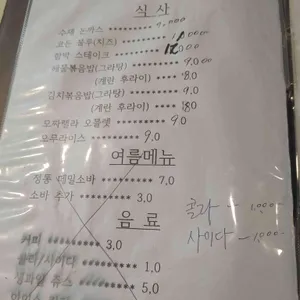 식 사
수제 돈까스 ******** 9,000
모듬 돌우(치즈) ******** 11,000
함박 스테이크 ******** 12,000
해물볶음밥(그라탕) ******** 9.0
(계란 후라이) **** 8.0
김치볶음밥(그라탕) **** 9.0
(계란 후라이) **** 8.0
모짜렐라 오믈렛 ******** 9.0
오무라이스 ******** 9.0
여름메뉴
정통 메밀소바 ******** 7,0
소바 추가 ******** 3,0
콜라 — 1,000
사이다 — 1,000
음 료
커피 ******** 3,0
콜라/사이다 ******** 1,0
쥬스 ******** 5,0